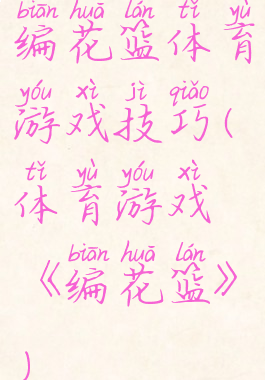 biān huā lán tǐ yù
编花篮体育
yóu xì jì qiǎo
游戏技巧(
tǐ yù yóu xì
体育游戏
biān huā lán
《编花篮》
)